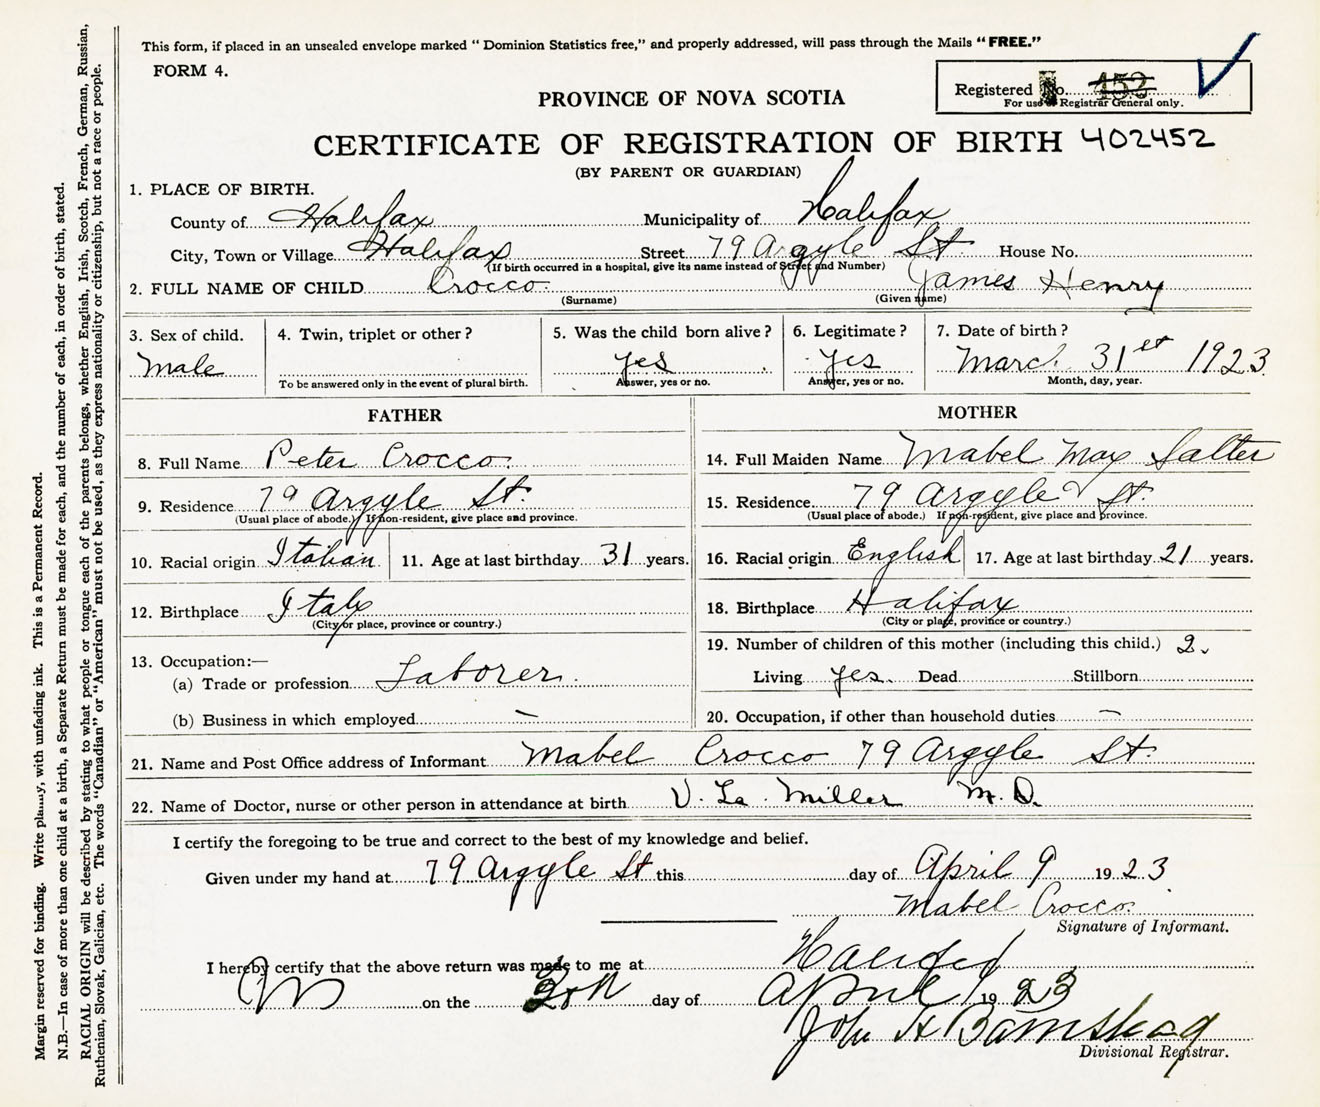 This form, if placed in an unsealed envelope marked "Dominion Statistics free," and properly addressed, will pass through the Mails "FREE."
FORM 4.
Registered No. 452
For use of Registrar General only.
PROVINCE OF NOVA SCOTIA
CERTIFICATE OF REGISTRATION OF BIRTH 402452
(BY PARENT OR GUARDIAN)
1. PLACE OF BIRTH.
County of Halifax Municipality of Halifax
City, Town or Village Halifax Street 79 Argyle St. House No.
(If birth occurred in a hospital, give its name instead of Street and Number)
2. FULL NAME OF CHILD Crocco James Henry
(Surname) (Given name)
3. Sex of child. 4. Twin, triplet or other? 5. Was the child born alive? 6. Legitimate? 7. Date of birth?
Male yes yes March 31st 1923
To be answered only in the event of plural birth. Answer, yes or no. Answer, yes or no. Month, day, year.
FATHER MOTHER
8. Full Name Peter Crocco. 14. Full Maiden Name Mabel May Salter
9. Residence 79 Argyle St. 15. Residence 79 Argyle St.
(Usual place of abode.) If non-resident, give place and province. (Usual place of abode.) If non-resident, give place and province.
10. Racial origin Italian 11. Age at last birthday 31 years. 16. Racial origin English 17. Age at last birthday 21 years.
12. Birthplace Italy 18. Birthplace Halifax
(City or place, province or country.) (City or place, province or country.)
13. Occupation:— 19. Number of children of this mother (including this child.) 2.
(a) Trade or profession Laborer. Living yes. Dead Stillborn
(b) Business in which employed — 20. Occupation, if other than household duties —
21. Name and Post Office address of Informant Mabel Crocco 79 Argyle St.
22. Name of Doctor, nurse or other person in attendance at birth V. La. Miller M.D.
I certify the foregoing to be true and correct to the best of my knowledge and belief.
Given under my hand at 79 Argyle St this day of April 9 1923
Mabel Crocco.
Signature of Informant.
I hereby certify that the above return was made to me at Halifax
on the day of April 1923
John H Barnstead
Divisional Registrar.
Margin reserved for binding. Write plainly, with unfading ink. This is a Permanent Record.
N.B.—In case of more than one child at a birth, a Separate Return must be made for each, and the number of each, in order of birth, stated.
RACIAL ORIGIN will be described by stating to what people or tongue each of the parents belongs, whether English, Irish, Scotch, French, German, Russian,
Ruthenian, Slovak, Galician, etc. The words "Canadian" or "American" must not be used, as they express nationality or citizenship, but not a race or people.